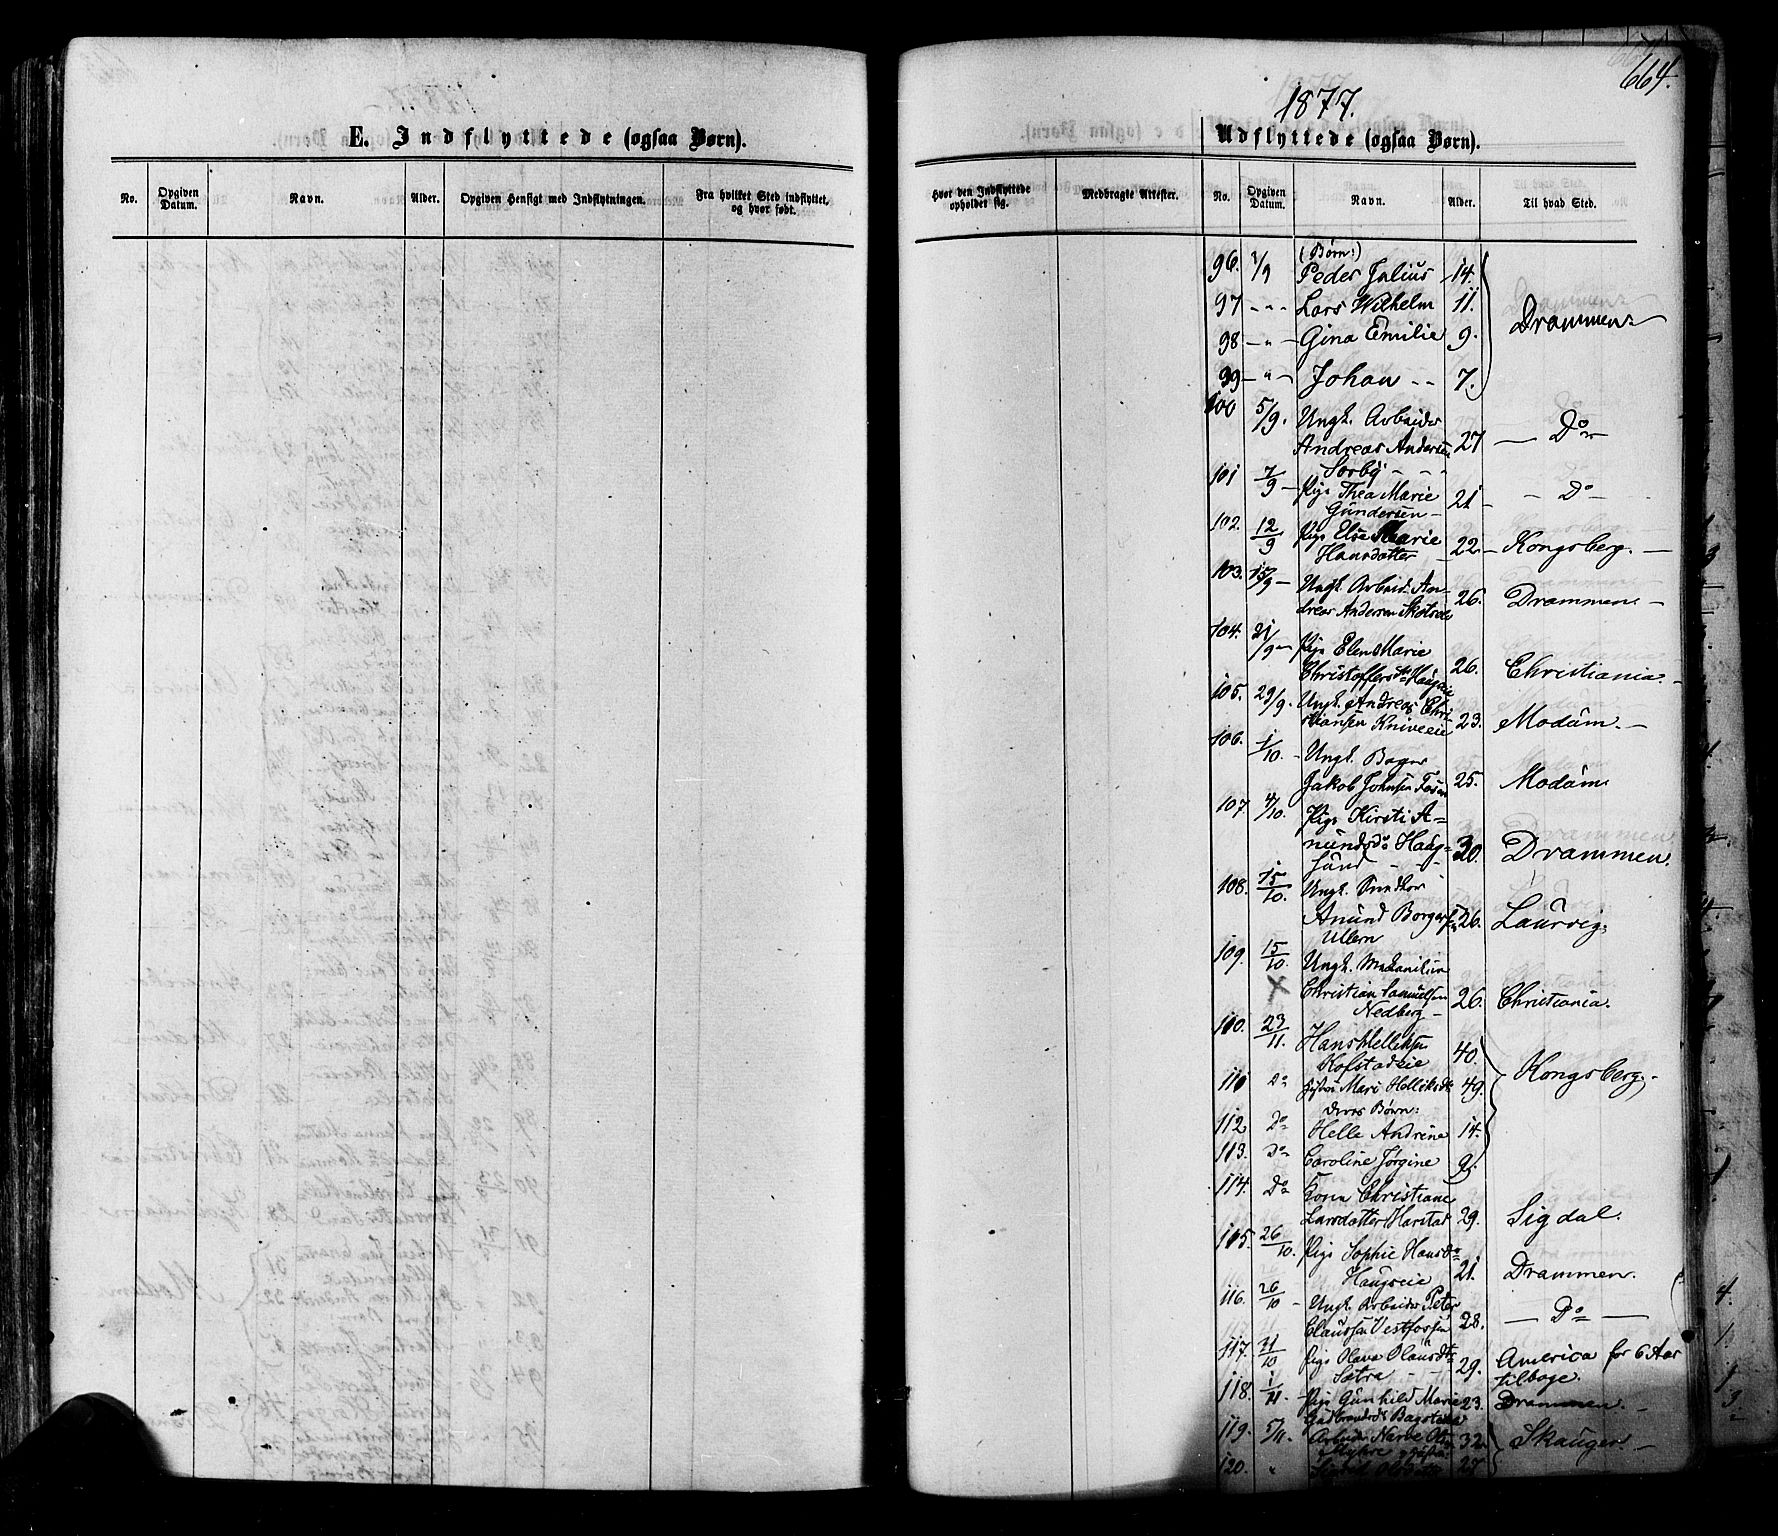 664.
1877.
E. Indflyttede (ogsaa Børn).
Udflyttede (ogsaa Børn).
No. Opgiven Datum. Navn. Alder. Opgiven Hensigt med Indflytningen. Fra hvilket Sted indflyttet, og hvor født.
Hvor den Indflyttede opholdet sig. Medbragte Attester. No. Opgiven Datum. Navn. Alder. Til hvad Sted.
(Børn:)
96. 1/9 Peder Julius 14.
97 - - - Lars Wilhelm 11. Drammen
98 - " - Gina Emilie 9.
99 - " - Johan - - 7.
100 5/9. Ungk. Arbeider
Andreas Andersen 27 - Do -
Sorby - - -
101 7/9 - Pige Thea Marie 21 - - Do -
Gundersen -
102. 12/9 Pige Else Marie
Hansdatter 22 - Kongsberg. -
103. 15/9 - Ungk. Arbeid. An-
dreas Andersen 26. Drammen -
104. 21/9 - Pige Elen Marie
Christoffersdr Haugeie 26. Christiania -
105. 29/9. Ungk. Andreas Chri-
stiansen Kniveeie 23. Modum. -
106. 1/10. - Ungk. Bager
Jakob Johnsen 25. Modum
107. 4/10. Pige Kirsti A-
mundsdr Haug- 30. Drammen.
sund - -
108. 15/10. Ungk.
Amund Borgersen 26. Laurvig.
Ullern
109. 15/10. Ungk.
x Christian Samuelsen 26. Christiania.
Nedberg -
110. 23/11. Hans Helliksen 40.
Hofstadeie Kongsberg. -
111 Do Mari Helliksdr 49.
deres Børn:
112 Do Helle Andrine 14.
113. Do Caroline Jørgine 9.
114. Do Kone Christiane
Larsdatter Harstad 29. Sigdal.
115. 26/10. Pige Sophie Hansdr
Haugseie 21. Drammen.
116. 26/10 - Ungk. Arbeider Peter
Claussen Vestfossen 28. - Do -
117. Pige Olava Olausdtr 29. America for 6 Aar
Sætra - - tilbage.
118. 1/11 - Pige Gunhild Marie 23. Drammen. -
Gudbrandsdr
119. 5/11. Arbeider 32. Skauger -
120. " 27